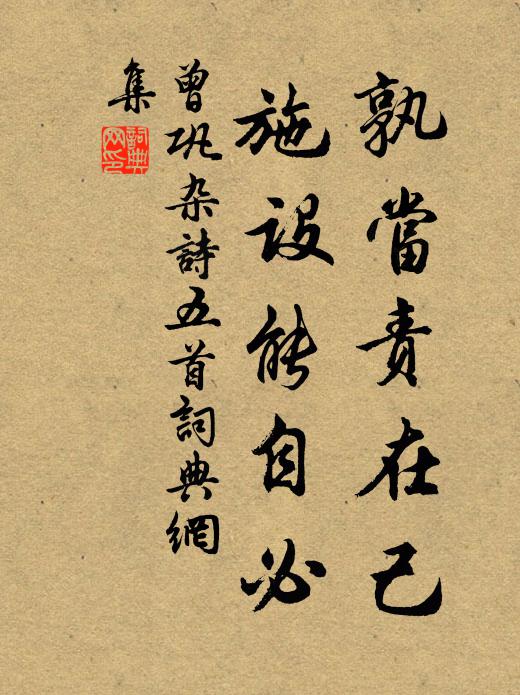 孰當責在己
施設能自必
曾巩杂詩五首詞典網
集
詞典
网印